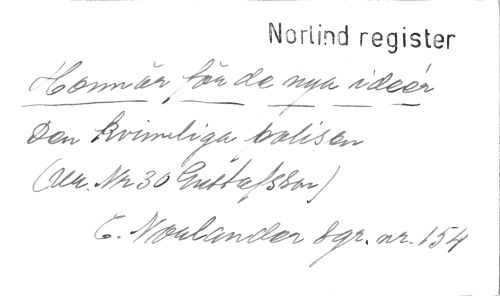 Norlind register
Honnör för de nya ideér
Den kvinnliga polisen
(ur. Nr 30 Gustafsson)
E. Norlander sgr. nr. 154